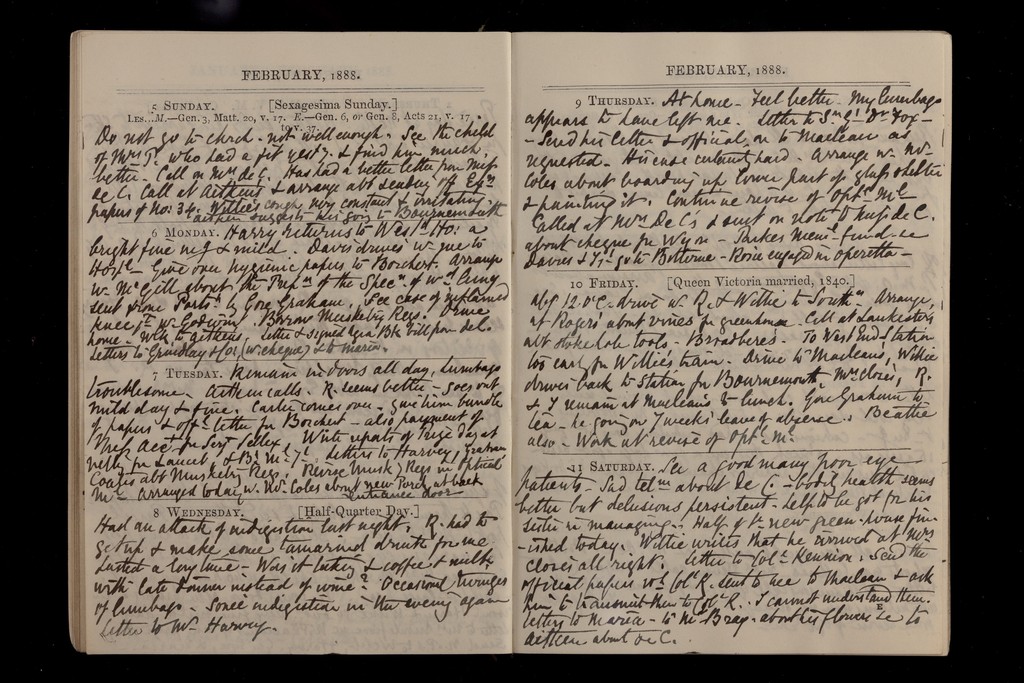 FEBRUARY, 1888.
5 SUNDAY. [Sexagesima Sunday.]
LES...M.—Gen. 3, Matt. 20, v. 17. E.—Gen. 6, or Gen. 8, Acts 21, v. 17.
Do not go to chrch. not well enough. See the child
of Mrs T. who had a fit yesty. & find him much
better. Call on Mrs de C. Has had a better letter from Miss
de C. Call at Aitkens & arrange abt sending off Exn
papers of No: 34. Willie's cough very constant & irritating
Aitken suggests his going to Bournemouth
6 MONDAY. Harry returns to Westn Ho: a
bright fine mg & mild. Davis drives w. me to
Hospl — Give over hygienic papers to Borchert. Arrange
w. McGill about the Prepn of the Specn of wd Lung
sent from Ports. by Gore Graham. See case of inflamed
knee jt w. Godwin. Borrow Musketry Regs. Drive
home. Wk to Aitkens, letter & signed Bk bill from de C.
Letters to Grindlay & Co: (w. cheque) & to Maria.
7 TUESDAY. Remain indoors all day, lumbago
troublesome. Aitken calls. R. seems better — goes out
mild day & fine. Carter comes over. Give him bundle
of papers & offl letter for Borchert — also payment of
Mess Acct for Sept. Write reports of Prize day at
Netly for Lancet, & B: M: Jl. Letters to Harvey, Graham
Coates abt Musketry Regs. Revise Musky Regs in Optical
Ml. Arranged today w. Mr. Coles about new Porch at back
Entrance door
8 WEDNESDAY. [Half-Quarter Day.]
Had an attack of indigestion last night. R. had to
get up & make some tamarind drink for me
Lasted a long time — Was it turkey & coffee & milk
with late dinner instead of wine? Occasional twinges
of lumbago. Some indigestion in the evening again
Letter to Mr Harvey.
FEBRUARY, 1888.
9 THURSDAY. At home — Feel better — My lumbago
appears to have left me. Letter to Sn Gl Dr Fox —
— Send his letter & official on to Maclean as
requested. His case certainly hard. Arrange w. Mr.
Coles about boarding up lower part of glass shelter
& painting it. Continue revise of Optl Ml
Called at Mrs De C's & sent on note to Miss de C.
about cheque for Wyon — Parkes Meml fund. Le
Davis & go to Bitterne — Rosie engaged in operetta —
10 FRIDAY. [Queen Victoria married, 1840.]
abt 12.0'C. drive w. R. & Willie to South'n. Arrange
at Rogers' about vines for greenhouse. Call at Lankesters
abt stokehole tools — Broadberes. To West End Station
too early for Willie's train. Drive to Macleans, Willie
drives back to station for Bournemouth, Mrs Close's, R.
& I remain at Macleans to lunch. Gore Graham to
tea — he going on 7 weeks leave of absence. Beattie
also — Work at revise of Optl Ml
11 SATURDAY. See a good many poor eye
patients. Sad telm about De C. — bodily health seems
better but delusions persistent. Help to be got for his
sister in managing. Half of the new green-house fin-
-ished today. Willie writes that he arrived at Mrs
Closes all right. Letter to Coll Reunion. Send the
official papers wh Coll R. sent to me to Maclean & ask
him to transmit them to Coll R. I cannot understand them.
Letters to Maria — to Mr Bray. about his flowers Le to
Aitken about de C.